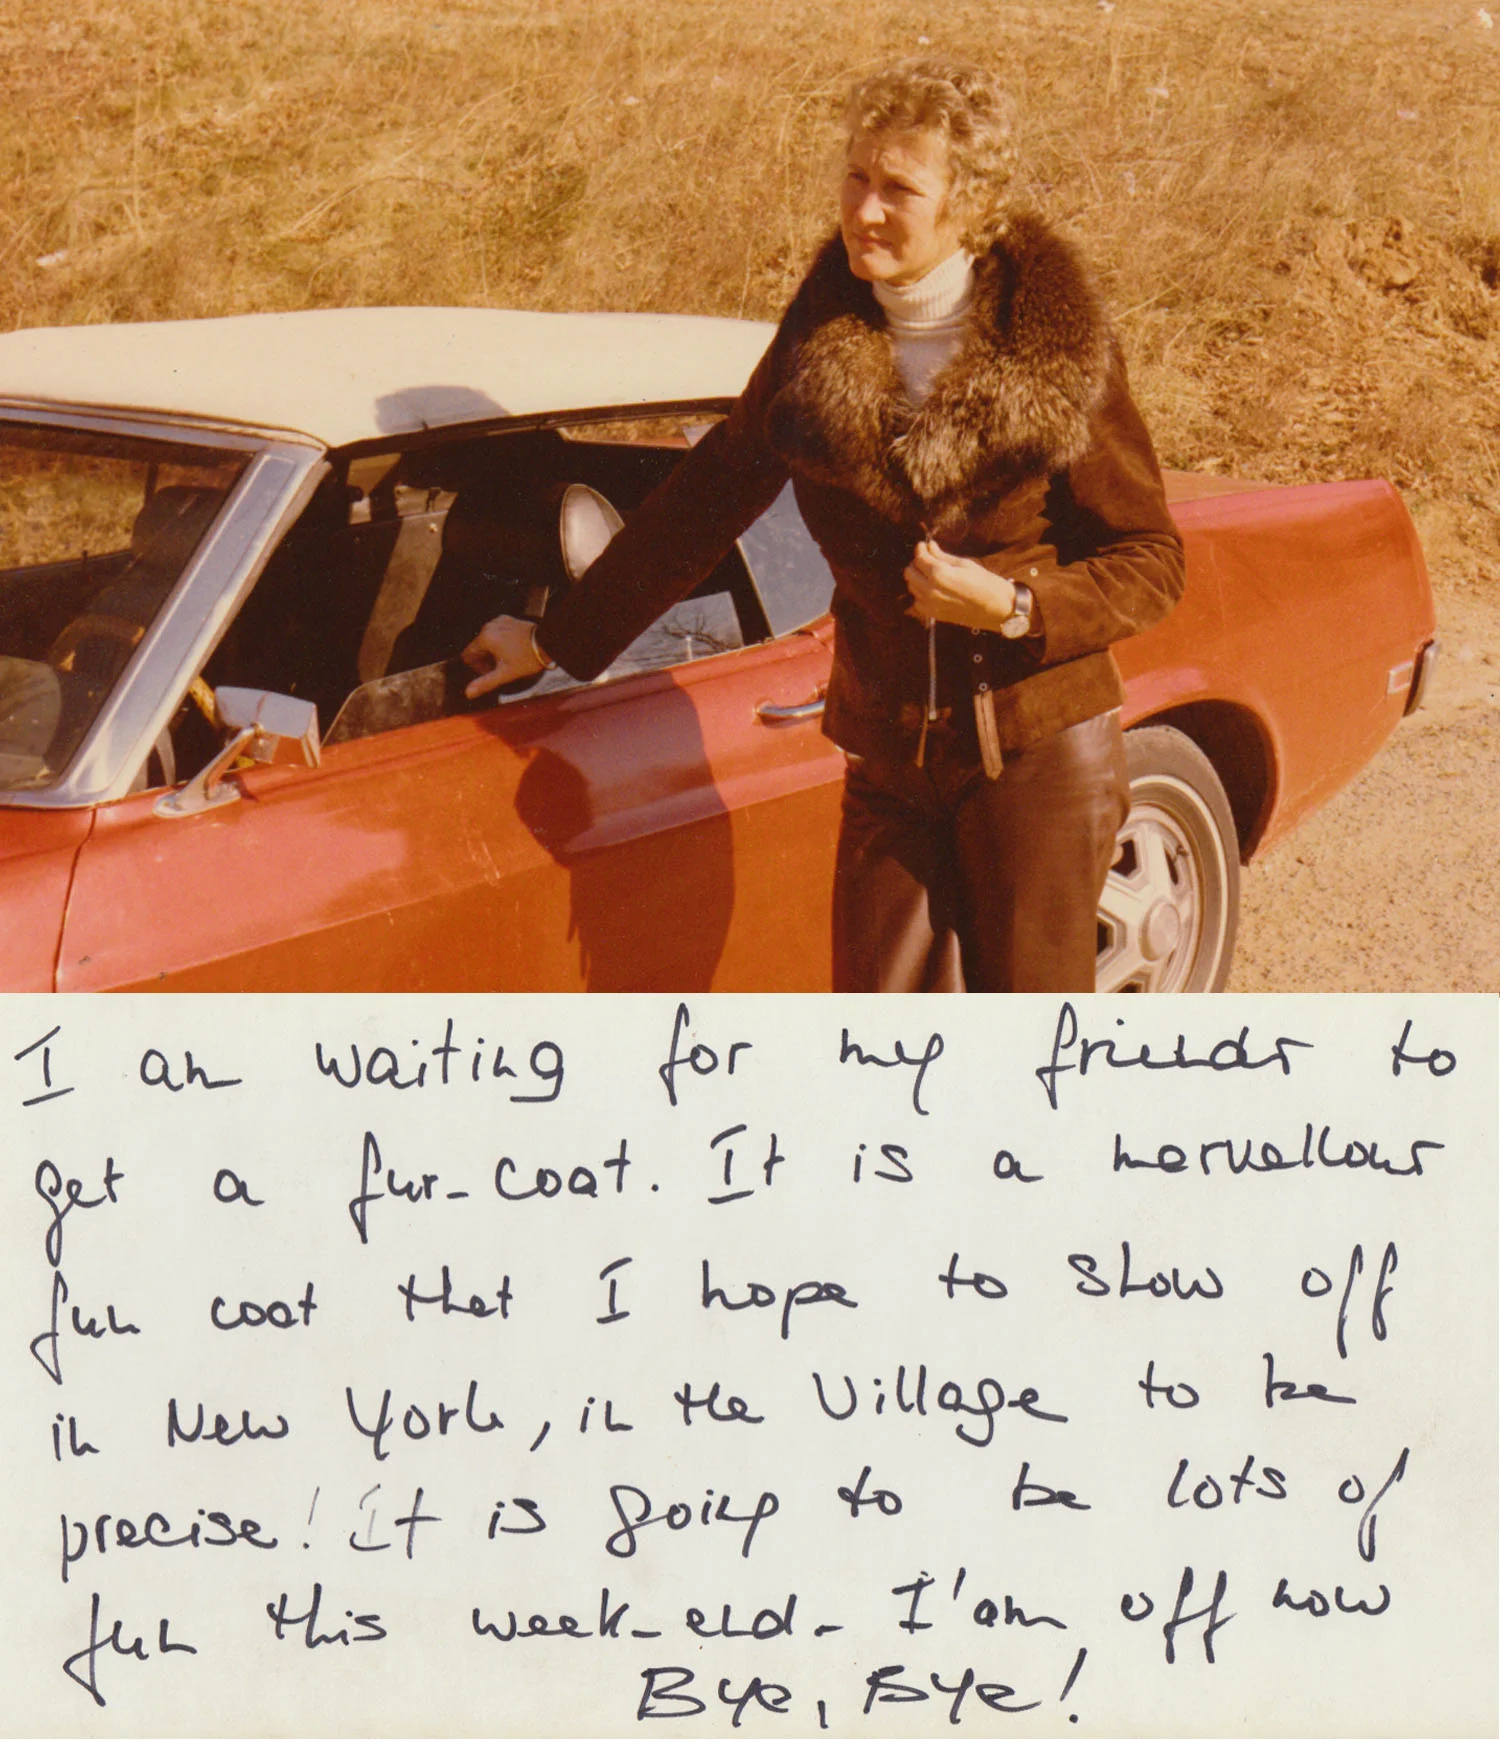 I am waiting for my friends to
get a fur-coat. It is a mervellous
fun coat that I hope to show off
in New York, in the Village to be
precise! It is going to be lots of
fun this week-end- I'am off now
Bye, Bye!